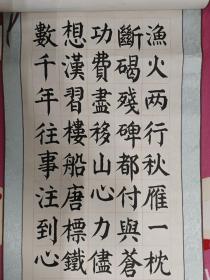 漁火两行秋雁一枕
斷碣殘碑都付與蒼
功費盡移山心力儘
想漢習樓船唐標鐵
數千年往事注到心